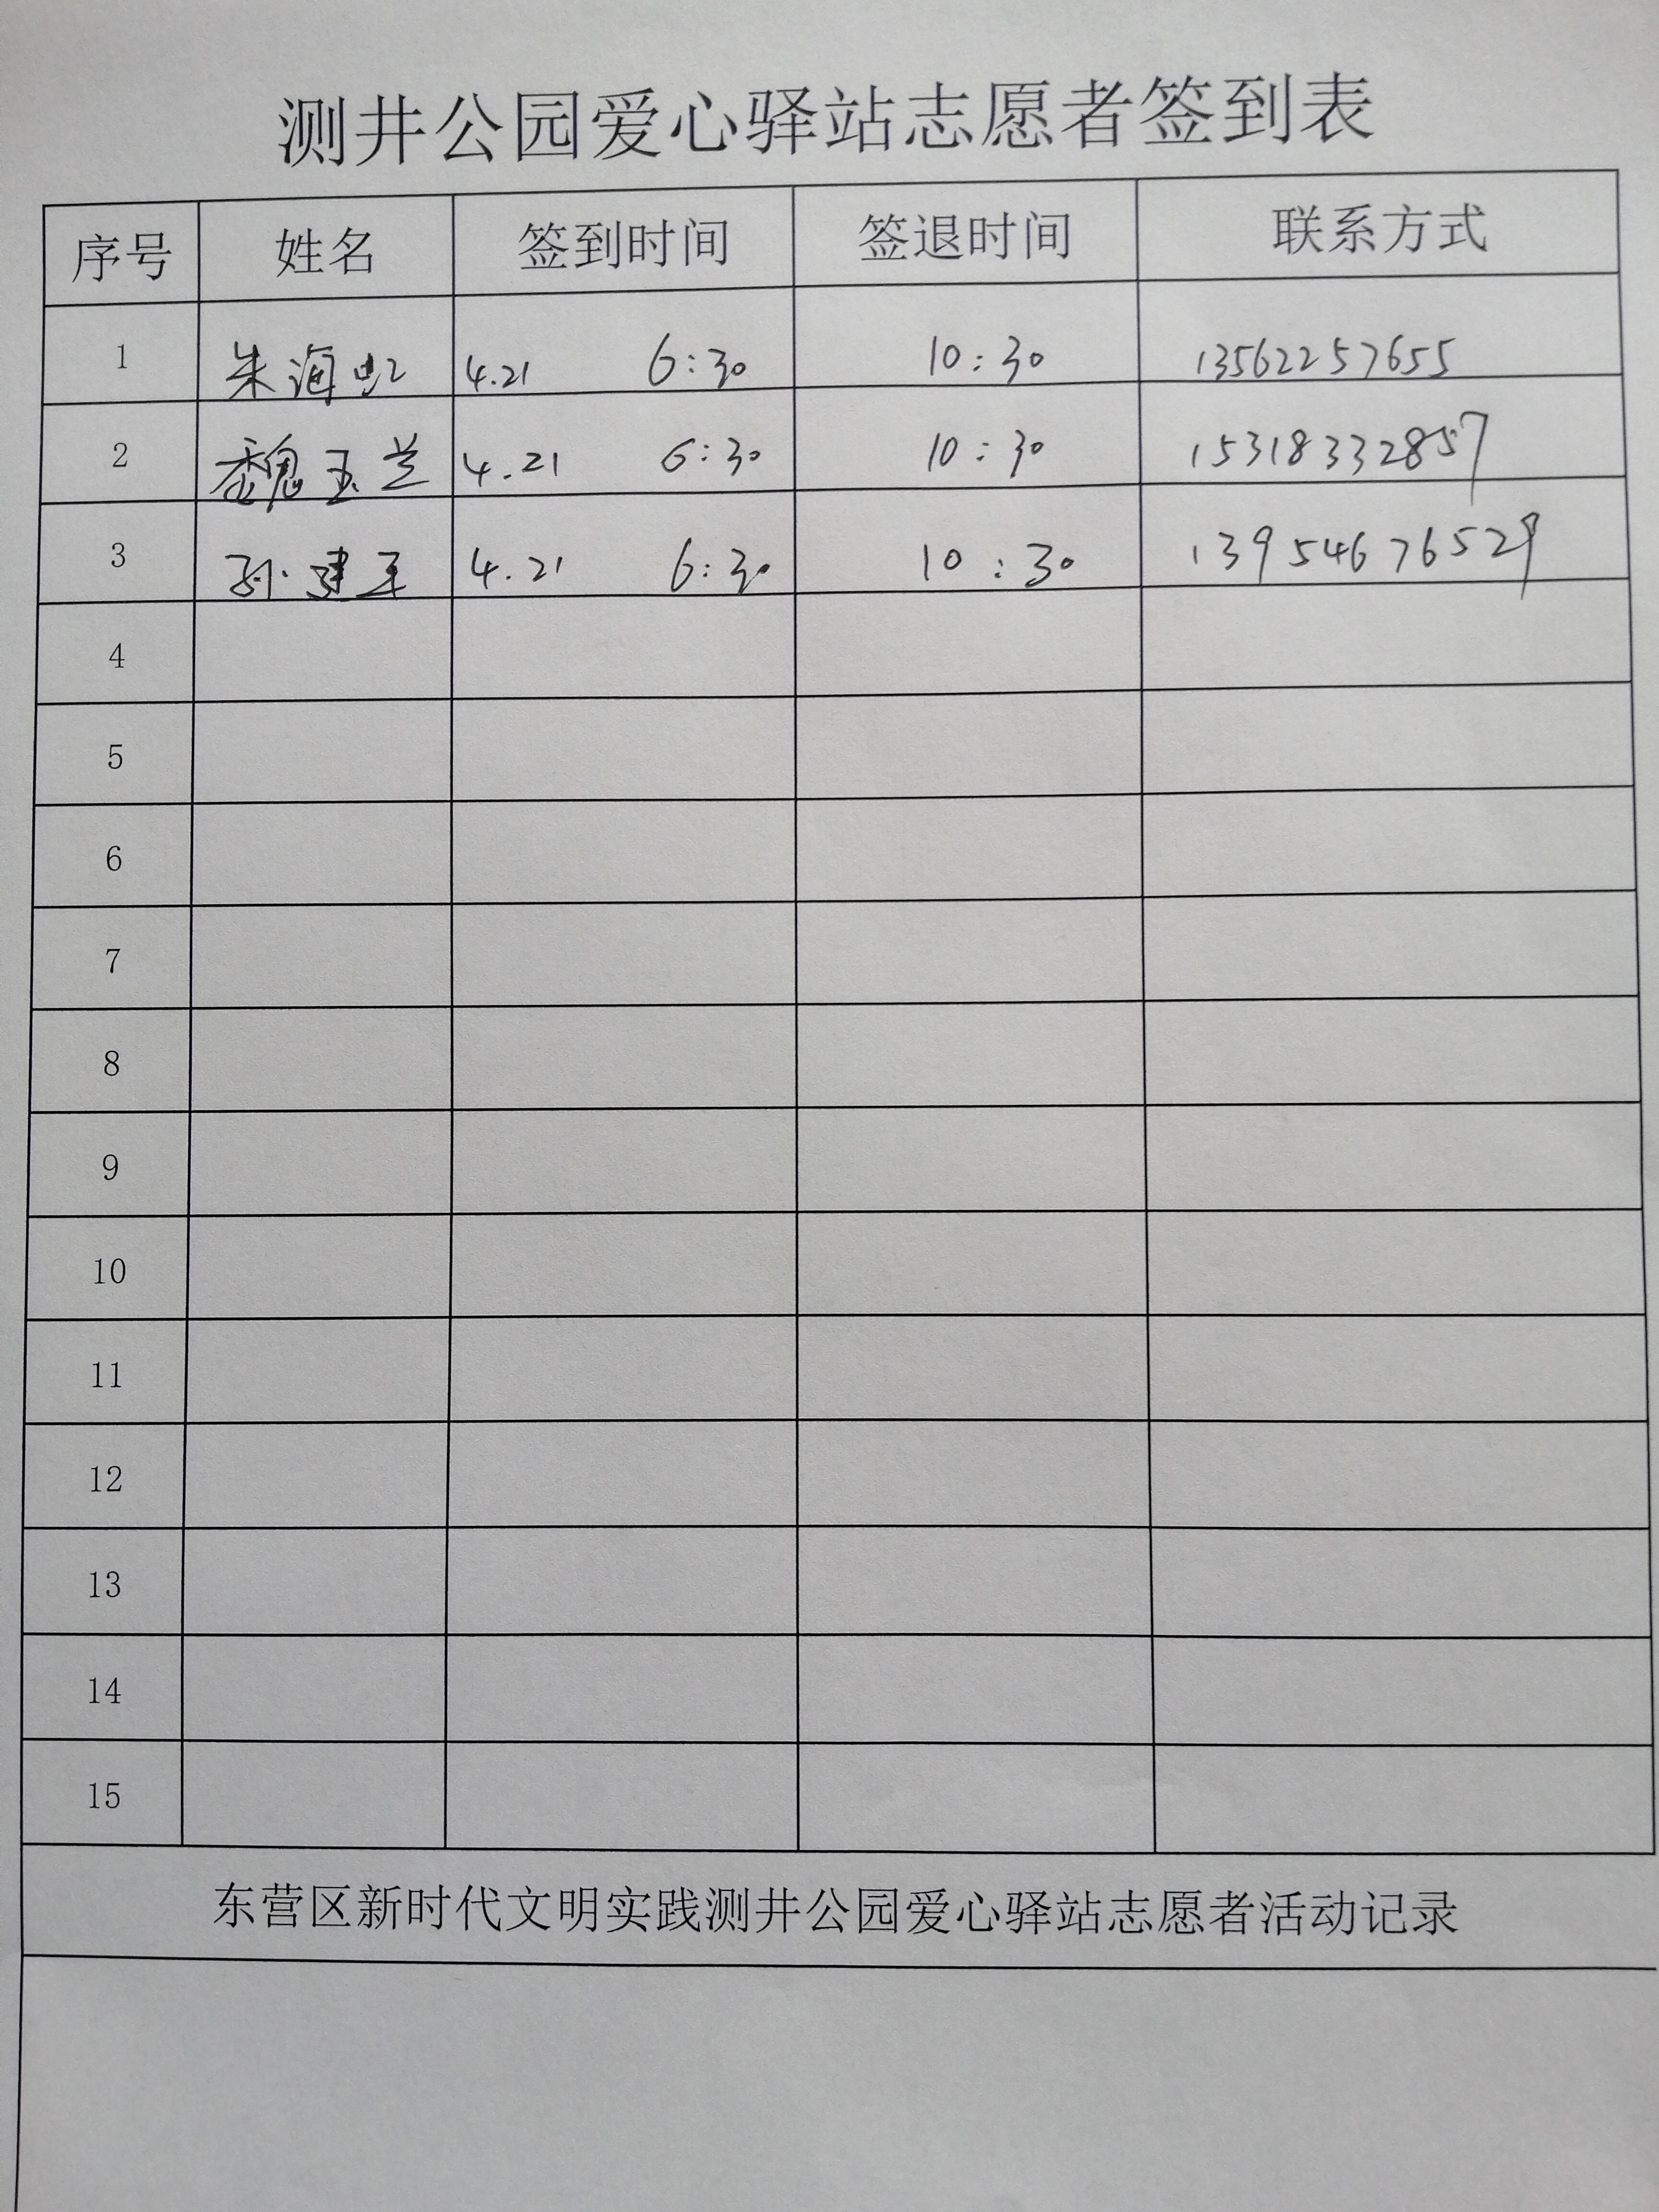 测井公园爱心驿站志愿者签到表
序号 姓名 签到时间 签退时间 联系方式
1 朱海虹 4.21 6:30 10:30 13562257655
2 魏玉兰 4.21 6:30 10:30 15318332857
3 孙建 4.21 6:30 10:30 13954676529
4
5
6
7
8
9
10
11
12
13
14
15
东营区新时代文明实践测井公园爱心驿站志愿者活动记录